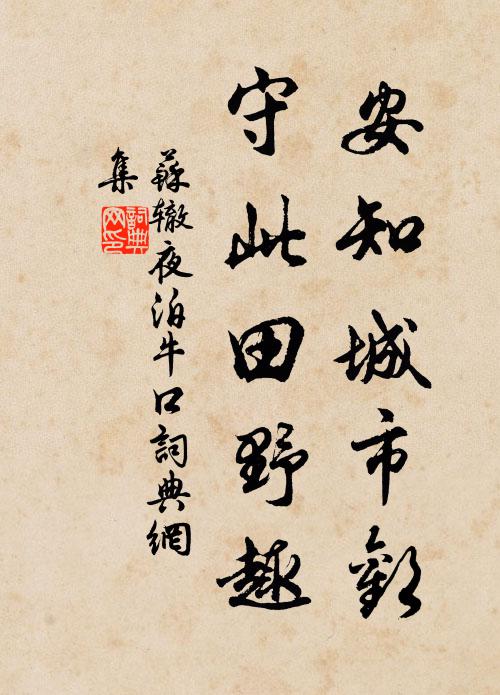 安知城市歡
守此田野趣
蘇轍夜泊牛口詞典網
集
詞典
网印